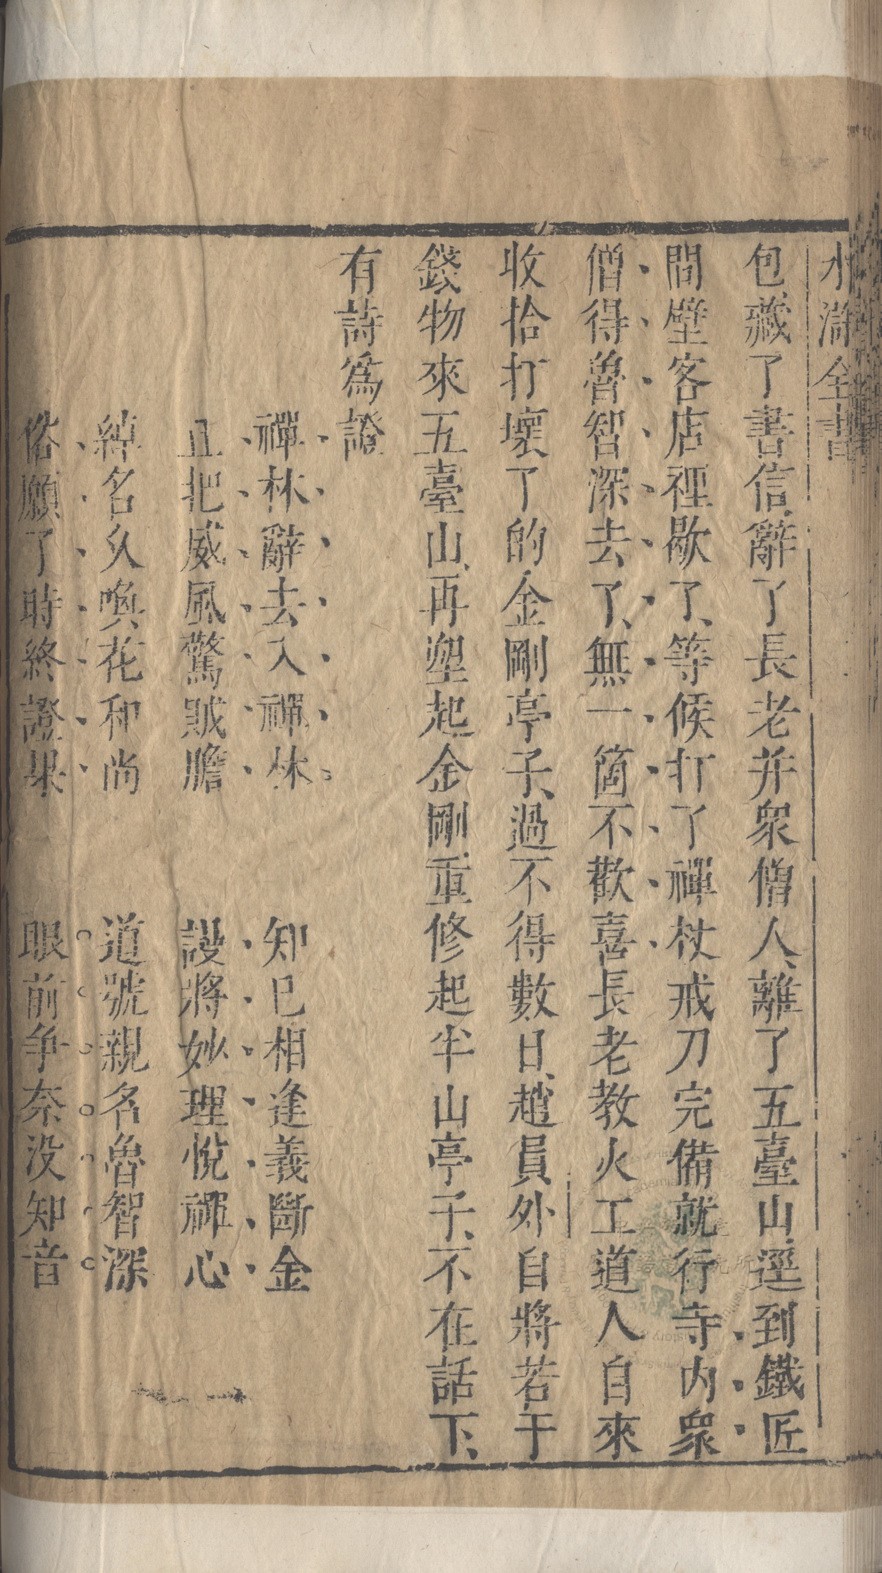 水滸全書
包藏了書信、辭了長老并衆僧人、離了五臺山、逕到鐵匠
間壁客店裡歇了、等候打了禪杖戒刀完備就行寺内衆
僧得魯智深去了、無一箇不歡喜長老教火工道人自來
收拾打壞了的金剛亭子、過不得數日、趙員外自將若干
錢物來五臺山、再塑起金剛、重修起半山亭子、不在話下、
有詩爲證
禪林辭去入禪林 知已相逢義斷金
且把威風驚賊膽 設將妙理悅禪心
綽名久喚花和尚 道號親名魯智深
俗願了時終證果 眼前争奈没知音